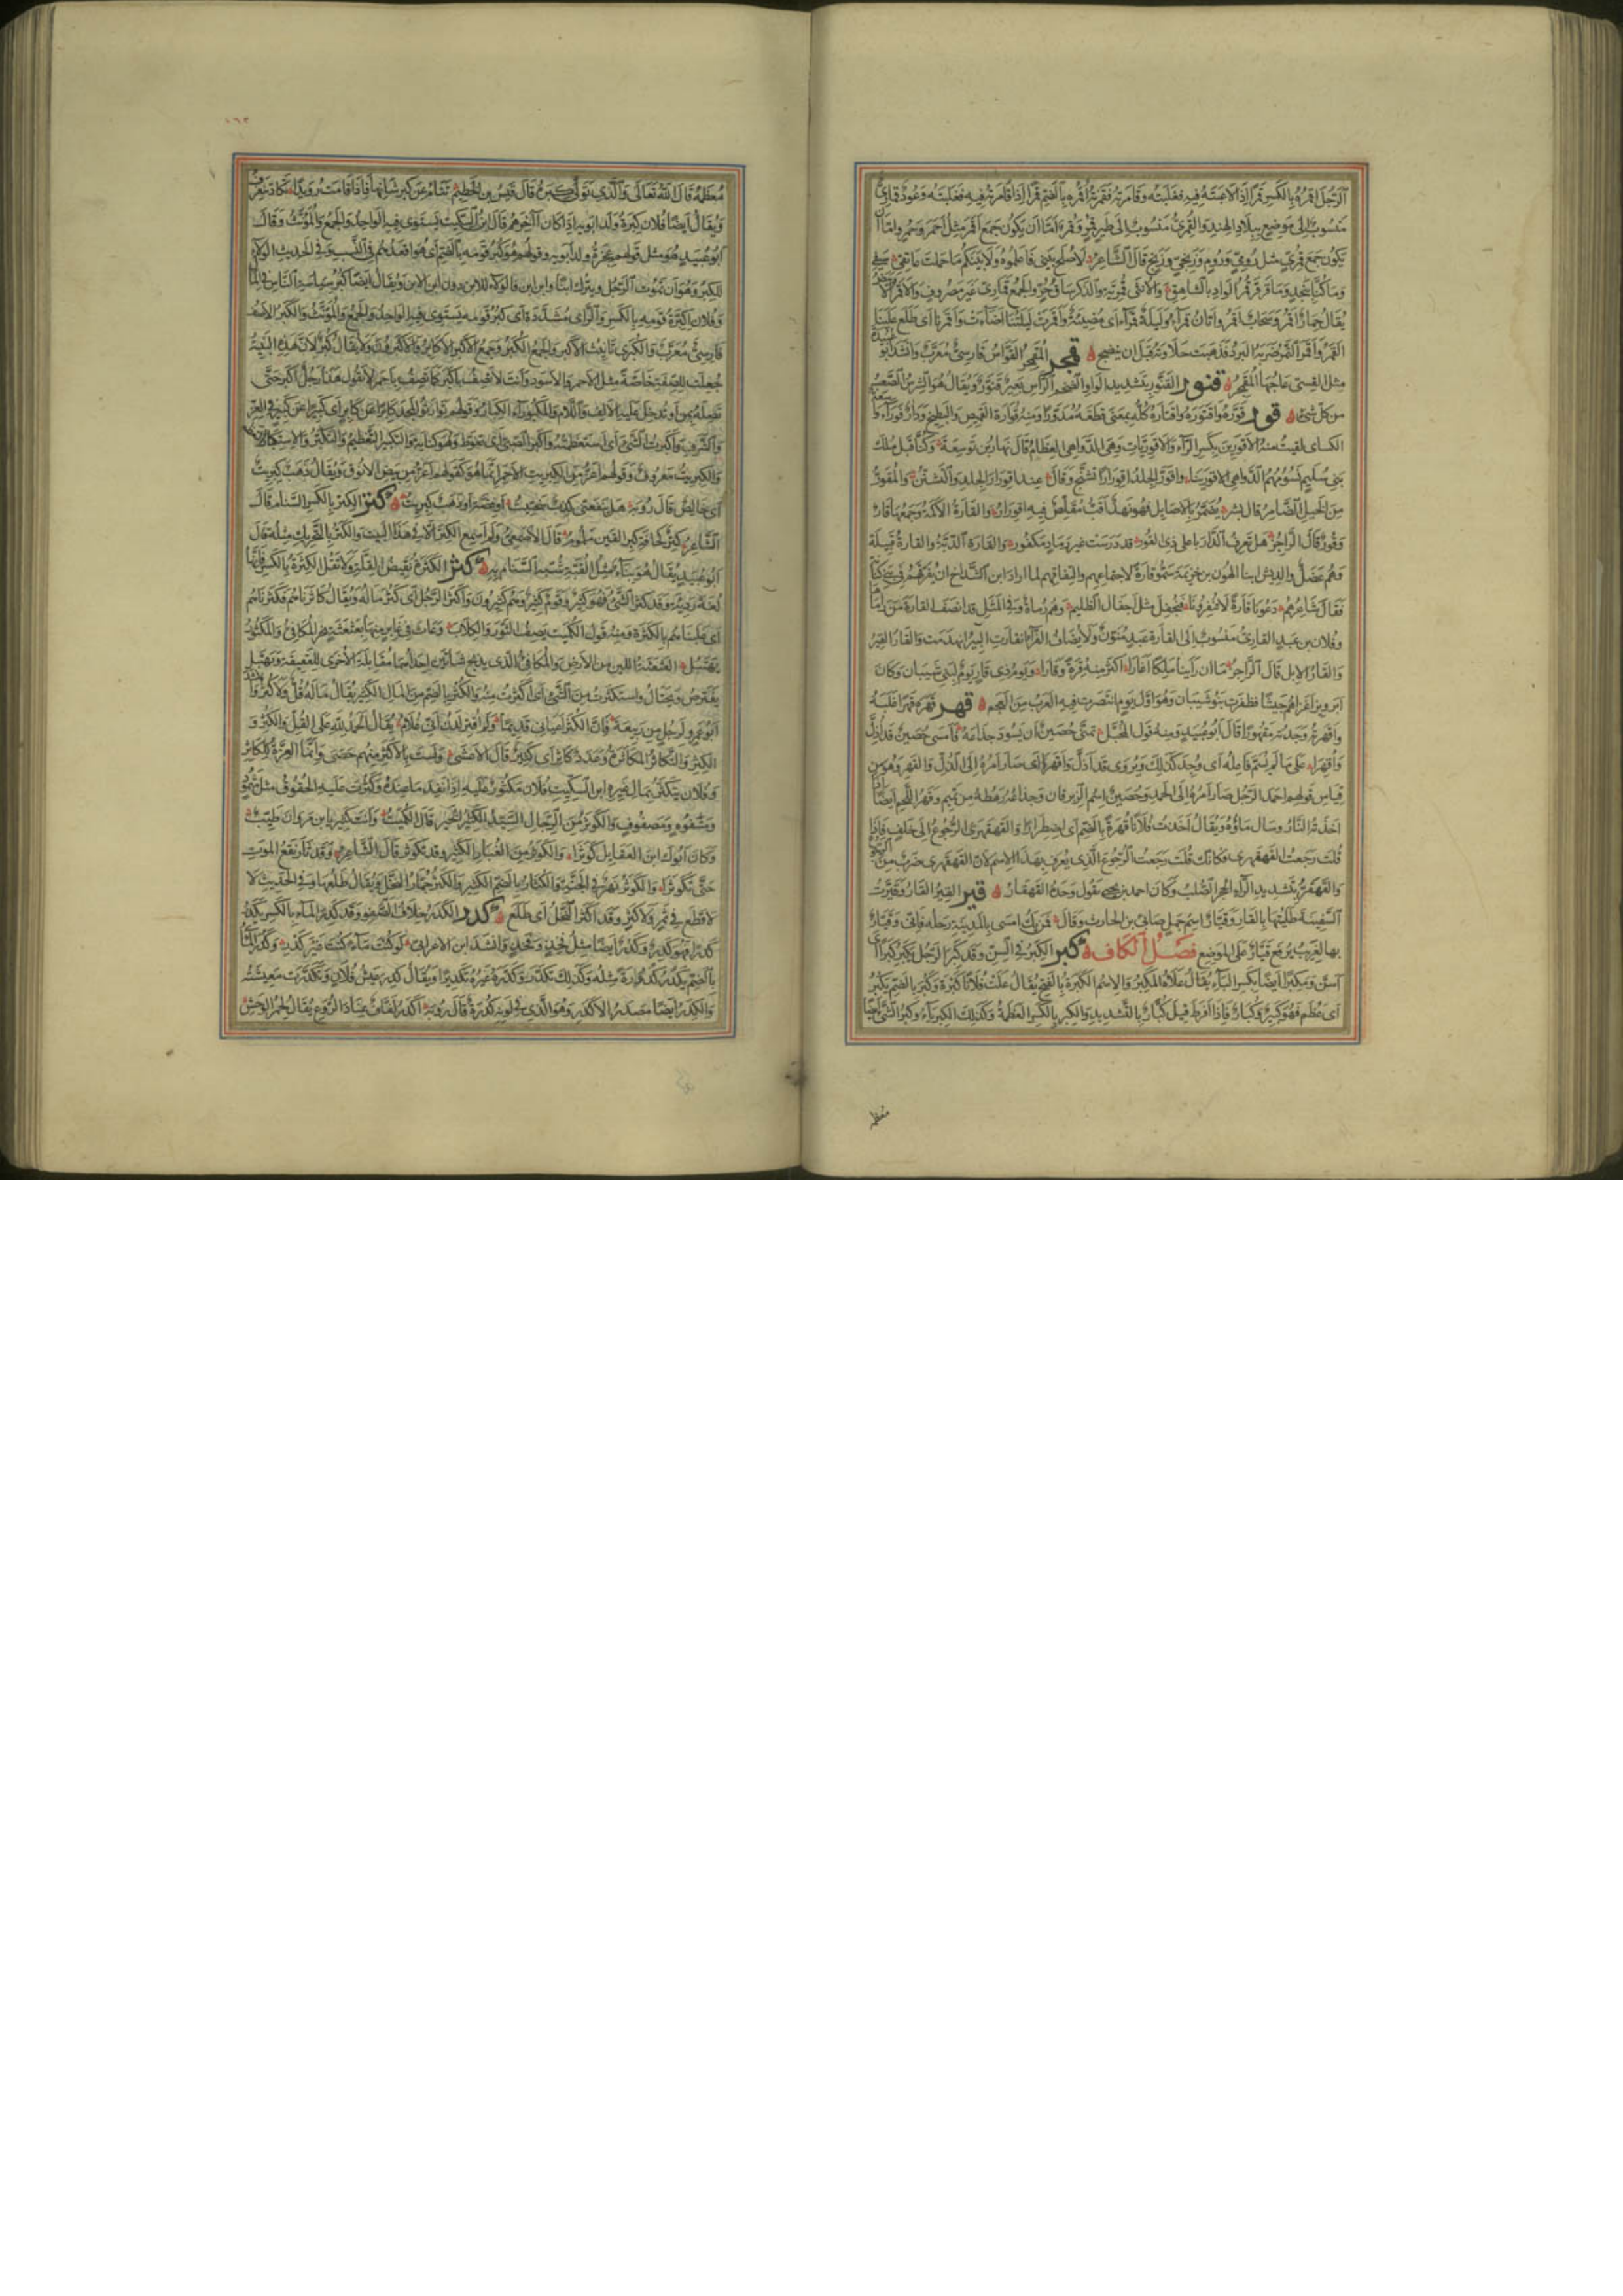 الرَّجُلَ اقمِرُهُ بِالكَسرِ قَمْرًا اِذا لاعَبتَهُ فِيهِ فغَلَبتَهُ وقامَرتُهُ فقَمَرتُهُ اَقْمُرُهُ بِالضَمِّ قَمْرًا اِذا فاخَرتَهُ فِيهِ فغَلَبتَهُ وعُودٌ قَمارِيٌّ
مَنسُوبٌ اِلى مَوضِعٍ بِبِلادِ الهِندِ والقُمرِيُّ مَنسُوبٌ اِلى طَيرٍ قُمْرٍ وقُمْرٌ اِمّا اَن يَكُونَ جَمعَ اَقمَرَ مِثلُ اَحمَرَ وحُمرٍ واِمّا اَن
يَكُونَ جَمعَ قُمرِيٍّ مِثلُ رُومِيٍّ ورُومٍ وزَنجِيٍّ وزَنجٍ قالَ الشّاعِرُ لا صُلحَ بَينِي فَاعلَمُوهُ ولا بَينَكُم ما حَمَلَت عاتِقِي سَيفِي
وما كُنّا بِنَجدٍ وما قَرقَرَ قُمرُ الوادِ بِالشّاهِقِ والاُنثى قُمرِيَّةٌ والذَكَرُ ساقُ حُرٍّ والجَمعُ قَمارِيُّ غَيرُ مَصرُوفٍ والاَقمَرُ الاَبيَضُ
يُقالُ حِمارٌ اَقمَرُ وسَحابٌ اَقمَرُ واَتانٌ قَمراءُ ولَيلَةٌ قَمراءُ اَي مُضِيئَةٌ واَقمَرَت لَيلَتُنا اَضاءَت واَقمَرنا اَي طَلَعَ عَلَينا
القَمَرُ واَقمَرَ التَمرُ ضَرَبَهُ البَردُ فذَهَبَت حَلاوَتُهُ قَبلَ ان يَنضَجَ قمجر المُقَمجِرُ القَوّاسُ فارِسِيٌّ مُعَرَّبٌ وانشَدَ ابو عُبَيدَة
مثل القِسِيِّ عاجَها المُقَمجِرُ قنور القَنَوَّرُ بِتَشدِيدِ الواوِ الضَخمُ الرَّأسِ بَعِيرٌ قَنَوَّرٌ ويُقالُ هُوَ الشَرِسُ الصَعبُ
من كل شَيءٍ قور قَوَّرَهُ واقتَوَرَهُ واقتارَهُ كُلُّهُ بِمَعنى قَطَعَهُ مُدَوَّرًا ومِنهُ قُوارَةُ القَمِيصِ والبَطِيخِ ودارٌ قَوراءُ واسعة
الكسائي لقيتُ منهُ الاَقوَرِينَ بِكَسرِ الرّاءِ والاَقوَرِيّاتِ وهِيَ الدَّواهِي العِظامُ قالَ نَهارُ بنُ تَوسِعَةَ وكُنّا قَبلَ مُلكِ
بَنِي سُلَيمٍ نَسُومُهُمُ الدَّواهِي الاَقوَرِينا واقوَرَّ الجِلدُ اقوِرارًا تَشَنَّجَ وقالَ عِندَ اقوِرارِ الجِلدِ والتَشَنُّنِ والمُقوَرُّ
مِنَ الخَيلِ الضّامِرُ قالَ بِشرٌ يُضَمَّرُ بِالاَصائِلِ فَهوَ نَهدٌ اَقَبُّ مُقَلَّصٌ فِيهِ اقوِرارُ والقارَةُ الاَكَمَةُ وجَمعُها قارٌ
وقُورٌ قالَ الرّاجِزُ هَل تَعرِفُ الدّارَ بِاَعلى ذِي القُورِ قَد دَرَسَت غَيرَ رَمادٍ مَكفُورِ والقارَةُ الدُبَّةُ والقارَةُ قَبِيلَةٌ
وهُم عَضَلٌ والدِيشُ ابنا الهُونِ بنِ خُزَيمَةَ سُمُّوا قارَةً لاجتِماعِهِم والتِفافِهِم لَمّا ارادَ ابنُ الشَدّاخِ ان يُفَرِّقَهُم في بَنِي كِنانَةَ
فَقالَ شاعِرُهُم دَعُونا قارَةً لا تُنفِرُونا فنُجفِلَ مِثلَ اِجفالِ الظَلِيمِ وهُم رُماةٌ وفِي المَثَلِ قَد اَنصَفَ القارَةَ مَن راماها
وفُلانُ بنُ عَبدٍ القارِيُّ مَنسُوبٌ اِلى القارَةِ عَبدٍ مُنَوَّنٌ ولا يُضافُ القَرّاءُ انقارَتِ البِئرُ انهَدَمَت والقارُ القِيرُ
والقارُ الاِبِلُ قالَ الرّاجِزُ ما اِن رَاَينا مَلِكًا اَغارا اَكثَرَ مِنهُ قِرَةً وقارا ويَومُ ذِي قارٍ يَومٌ لِبَنِي شَيبانَ وكانَ
اَبرَوِيزُ اَغزاهُم جَيشًا فظَفِرَت بَنُو شَيبانَ وهُوَ اَوَّلُ يَومٍ انتَصَرَت فِيهِ العَرَبُ مِنَ العَجَمِ قهر قَهَرَهُ قَهرًا غَلَبَهُ
واَقهَرتُهُ وَجَدتُهُ مَقهُورًا قالَ اَبُو عُبَيدٍ ومِنهُ قَولُ المُخَبَّلِ تَمَنّى حُصَينٌ اَن يَسُودَ جِذاعَهُ فَاَمسى حُصَينٌ قَد اُذِلَّ
واُقهِرا على ما لَم يُسَمَّ فاعِلُهُ اَي وُجِدَ كَذلِكَ ويُروى قَد اَذَلَّ واَقهَرا اَي صارَ اَمرُهُ اِلى الذُلِّ والقَهرِ وهُوَ مِن
قِياسِ قَولِهِم اَحمَدَ الرَّجُلُ صارَ اَمرُهُ اِلى الحَمدِ وحُصَينٌ اِسمُ الزِبرِقانِ وجِذاعُهُ رَهطُهُ مِن تَمِيمٍ وقُهِرَ اللَحمُ اَيضًا اِذا
اَخَذَتهُ النّارُ وسالَ ماؤُهُ ويُقالُ اَخَذتُ فُلانًا قُهرَةً بِالضَمِّ اَي اضطِرارًا والقَهقَرى الرُّجُوعُ اِلى خَلفٍ فَاِذا
قُلتَ رَجَعتُ القَهقَرى فكَاَنَّكَ قُلتَ رَجَعتُ الرُّجُوعَ الَّذِي يُعرَفُ بِهذا الاِسمِ لاَنَّ القَهقَرى ضَربٌ مِنَ الرجوع
والقَهقَرُّ بِتَشدِيدِ الرّاءِ الحَجَرُ الصُلبُ وكانَ احمد بن يحيى يَقُولُ وَحدَهُ القَهقارُ قير القِيرُ القارُ وقَيَّرتُ
السَفِينَةَ طَلَيتُها بِالقارِ وقَيّارٌ اِسمُ جَمَلِ ضابِئِ بنِ الحارِثِ وقالَ فمَن يَكُ اَمسى بِالمَدِينَةِ رَحلُهُ فَاِنِّي وقَيّارٌ
بها لَغَرِيبُ يُرفَعُ قَيّارٌ على المَوضِعِ فَصلُ الكاف كبر الكِبَرُ فِي السِنِّ وقَد كَبِرَ الرَّجُلُ يَكبَرُ كِبَرًا اَي
اَسَنَّ ومَكبِرًا اَيضًا بِكَسرِ الباءِ يُقالُ عَلاهُ المَكبِرُ والاِسمُ الكَبرَةُ بِالفَتحِ يُقالُ عَلَت فُلانًا كَبرَةٌ وكَبُرَ بِالضَمِّ يَكبُرُ
اَي عَظُمَ فَهُوَ كَبِيرٌ وكُبارٌ فَاِذا اَفرَطَ قِيلَ كُبّارٌ بِالتَشدِيدِ والكِبرُ بِالكَسرِ العَظَمَةُ وكَذلِكَ الكِبرِياءُ وكِبرُ الشَيءِ اَيضًا
معظمه
١٦٢
مُعظَمُهُ قالَ اللهُ تَعالى والَّذِي تَوَلّى كِبرَهُ قالَ قَيسُ بنُ الخَطِيمِ تَنامُ عَن كِبرِ شَانِها فَاِذا قامَت رُوَيدًا تَكادُ تَنغَرِفُ
ويُقالُ اَيضًا فُلانٌ كِبرَةُ وَلَدِ اَبَوَيهِ اِذا كانَ آخِرَهُم قالَ ابنُ السِكِّيتِ يَستَوِي فِيهِ الواحِدُ والجَمعُ والمُؤَنَّثُ وقالَ
اَبُو عُبَيدٍ هُوَ مِثلُ قَولِهِم عِجزَةُ وَلَدِ اَبَوَيهِ وقَولُهُم هُوَ كُبرُ قَومِهِ بِالضَمِّ اَي هُوَ اَقعَدُهُم فِي النَسَبِ وفِي الحَدِيثِ الوَلاءُ
لِلكُبرِ وهُوَ اَن يَمُوتَ الرَّجُلُ ويَترُكَ ابنًا وابنَ ابنٍ فَالوَلاءُ لِلاِبنِ دُونَ ابنِ الاِبنِ ويُقالُ اَيضًا كُبرُ سِياسَةِ النّاسِ فِي المال
وفُلانٌ اِكبِرَّةُ قَومِهِ بِالكَسرِ والرّاءِ مُشَدَّدَةً اَي كُبرُ قَومِهِ يَستَوِي فِيهِ الواحِدُ والجَمعُ والمُؤَنَّثُ والكَبَرُ الاَصَف
فارِسِيٌّ مُعَرَّبٌ والكُبرى تَانِيثُ الاَكبَرِ والجَمعُ الكُبَرُ وجَمعُ الاَكبَرِ الاَكابِرُ والاَكبَرُونَ ولا يُقالُ كُبرٌ لاَنَّ هذِهِ البِنيَةَ
جُعِلَت لِلصِفَةِ خاصَّةً مِثلُ الاَحمَرِ والاَسوَدِ واَنتَ لا تَصِفُ بِاَكبَرَ كَما تَصِفُ بِاَحمَرَ لا تَقُولُ هذا رَجُلٌ اَكبَرُ حَتّى
تَصِلَهُ بِمِن اَو تُدخِلَ عَلَيهِ الاَلِفَ واللّامَ والمَكبُوراءُ الكِبارُ وقَولُهُم تَوارَثُوا المَجدَ كابِرًا عَن كابِرٍ اَي كَبِيرًا عَن كَبِيرٍ فِي العِزِّ
والشَرَفِ واَكبَرتُ الشَيءَ اَي استَعظَمتُهُ واَكبَرَ الصَبِيُّ اَي تَغَوَّطَ وهُوَ كِنايَةٌ والتَكبِيرُ التَعظِيمُ والتَكَبُّرُ والاِستِكبارُ
والكِبرِيتُ مَعرُوفٌ وقَولُهُم اَعَزُّ مِنَ الكِبرِيتِ الاَحمَرِ اِنَّما هُوَ كَقَولِهِم اَعَزُّ مِن بَيضِ الاَنُوقِ ويُقالُ ذَهَبٌ كِبرِيتٌ
اَي خالِصٌ قالَ رُوبَةُ هَل يَنفَعَنِّي كَذِبٌ سِختِيتُ اَو فِضَّةٌ اَو ذَهَبٌ كِبرِيتُ كتر الكِترُ بِالكَسرِ السَنامُ قالَ
الشّاعِرُ كِترٌ كَحافَةِ كِيرِ القَينِ مَلمُومُ قالَ الاَصمَعِيُّ ولَم اَسمَعِ الكِترَ اِلّا فِي هذا البَيتِ والكَتَرُ بِالتَحرِيكِ مِثلُهُ قالَ
اَبُو عُبَيدٍ يُقالُ هُوَ بِناءٌ مِثلُ القُبَّةِ شُبِّهَ السَنامُ بِهِ كثر الكَثرَةُ نَقِيضُ القِلَّةِ ولا تَقُل الكِثرَةُ بِالكَسرِ فَاِنَّها
لُغَةٌ رَدِيئَةٌ وقَد كَثُرَ الشَيءُ فَهُوَ كَثِيرٌ وقَومٌ كَثِيرٌ وهُم كَثِيرُونَ واَكثَرَ الرَّجُلُ اَي كَثُرَ مالُهُ ويُقالُ كاثَرناهُم فكَثَرناهُم
اَي غَلَبناهُم بِالكَثرَةِ ومِنهُ قَولُ الكُمَيتِ يَصِفُ الثَورَ والكِلابَ وعاثَ فِي غابِرٍ مِنها بِعَثعَثَةٍ نَحرَ المُكافِئِ والمَكثُورُ
يَهتَبِلُ العَثعَثَةُ اللَّينُ مِنَ الاَرضِ والمُكافِئُ الَّذِي يَذبَحُ شاتَينِ اِحداهُما مُقابَلَةَ الاُخرى لِلعَقِيقَةِ ويَهتَبِلُ
يَفتَرِصُ ويَحتالُ واستَكثَرتُ مِنَ الشَيءِ اَي اَكثَرتُ مِنهُ والكُثرُ بِالضَمِّ مِنَ المالِ الكَثِيرُ يُقالُ ما لَهُ قُلٌّ ولا كُثرٌ وانشد
اَبُو عَمرٍو لِرَجُلٍ مِن رَبِيعَةَ فَاِنَّ الكُثرَ اَعيانِي قَدِيمًا ولَم اُقتِر لَدُن اَنِّي غُلامُ يُقالُ الحَمدُ لِلّهِ على القُلِّ والكُثرِ و
الكِثرِ والتَكاثُرُ المُكاثَرَةُ وعَدَدٌ كاثِرٌ اَي كَثِيرٌ قالَ الاَعشى ولَستَ بِالاَكثَرِ مِنهُم حَصًى واِنَّما العِزَّةُ لِلكاثِرِ
وفُلانٌ يَتَكَثَّرُ بِمالِ غَيرِهِ ابنُ السِكِّيتِ فُلانٌ مَكثُورٌ عَلَيهِ اِذا نَفِدَ ما عِندَهُ وكَثُرَت عَلَيهِ الحُقُوقُ مِثلُ مَثمُودٍ
ومَشفُوهٍ ومَضفُوفٍ والكَوثَرُ مِنَ الرِّجالِ السَيِّدُ الكَثِيرُ الخَيرِ قالَ الكُمَيتُ واَنتَ كَثِيرٌ يا ابنَ مَروانَ طَيِّبٌ
وكانَ اَبُوكَ ابنُ العَقائِلِ كَوثَرا والكَوثَرُ مِنَ الغُبارِ الكَثِيرُ وقَد تَكَوثَرَ قالَ الشّاعِرُ وقَد ثارَ نَقعُ المَوتِ
حَتّى تَكَوثَرا والكَوثَرُ نَهرٌ فِي الجَنَّةِ والكُثارُ بِالضَمِّ الكَثِيرُ والكَثَرُ جُمّارُ النَخلِ ويُقالُ طَلعُها وفِي الحَدِيثِ لا
لا قَطعَ فِي ثَمَرٍ ولا كَثَرٍ وقَد اَكثَرَ النَخلُ اَي طَلَعَ كدر الكَدَرُ خِلافُ الصَفوِ وقَد كَدِرَ الماءُ بِالكَسرِ يَكدَرُ
كَدَرًا فَهُوَ كَدِرٌ وكَدْرٌ اَيضًا مِثلُ فَخِذٍ وفَخْذٍ وانشَدَ ابنُ الاَعرابِيِّ لَو كُنتَ ماءً كُنتَ غَيرَ كَدرِ وكَدُرَ الماءُ
بِالضَمِّ يَكدُرُ كُدُورَةً مِثلُهُ وكَذلِكَ تَكَدَّرَ وكَدَّرَهُ غَيرُهُ تَكدِيرًا ويُقالُ كَدِرَ عَيشُ فُلانٍ وتَكَدَّرَت مَعِيشَتُهُ
والكَدَرُ اَيضًا مَصدَرُ الاَكدَرِ وهُوَ الَّذِي فِي لَونِهِ كُدرَةٌ قالَ رُوبَةُ اَكدَرُ لَفّافٌ عِنادَ الرُّوَّغِ يُقالُ لِحُمُرِ الوَحشِ